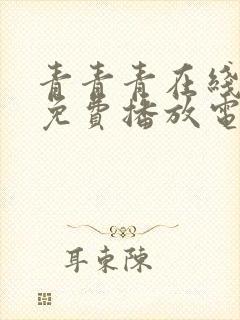 青青青在线
免费播放電
耳東陳